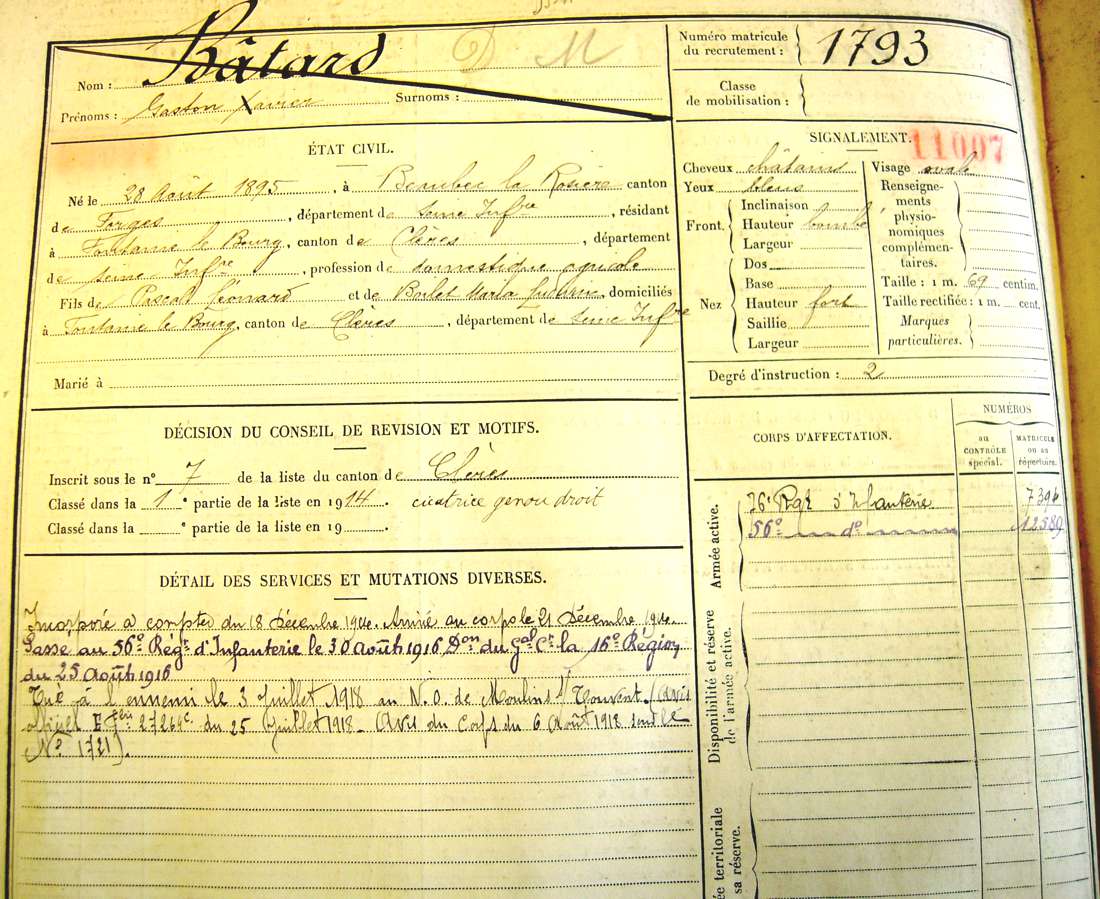 Nom : Bâtard D M
Prénoms : Gaston Xavier Surnoms :
Numéro matricule
du recrutement : 1793
Classe
de mobilisation :
ÉTAT CIVIL.
Né le 28 Août 1895, à Beaubec la Rosière canton
de Forges, département de Seine Infre, résidant
à Fontaine le Bourg, canton de Clères, département
de Seine Infre, profession de domestique agricole
Fils de Pascal Léonard et de Boilet Maria, domiciliés
à Fontaine le Bourg, canton de Clères, département de Seine Infre
Marié à
SIGNALEMENT. 11007
Cheveux châtains
Yeux bleus
Front. Inclinaison
Hauteur bombé
Largeur
Nez Dos
Base
Hauteur fort
Saillie
Largeur
Visage ovale
Renseigne-
ments
physio-
nomiques
complémen-
taires.
Taille : 1 m. 69 centim.
Taille rectifiée : 1 m. cent.
Marques
particulières.
Degré d'instruction : 2
DÉCISION DU CONSEIL DE REVISION ET MOTIFS.
Inscrit sous le n° 7 de la liste du canton de Clères
Classé dans la 1e partie de la liste en 1914 cicatrice genou droit
Classé dans la e partie de la liste en 19
CORPS D'AFFECTATION.
NUMÉROS
au
CONTRÔLE
spécial.
MATRICULE
ou au
répertoire.
Armée active.
76e Rgt d'Infanterie 7394
56e do 12589
Disponibilité et réserve
de l'armée active.
ée territoriale
sa réserve.
DÉTAIL DES SERVICES ET MUTATIONS DIVERSES.
Incorporé à compter du 18 Décembre 1914. Arrivé au corps le 21 Décembre 1914.
Passe au 56e Régt d'Infanterie le 30 Août 1916 Don du Gal Ct la 16e Région
du 25 Août 1916
Tué à l'ennemi le 3 Juillet 1918 au N.O. de Moulins s/ Touvent. (Avis
officiel du 25 Juillet 1918 - Avis du Corps du 6 Août 1918
No 1721).